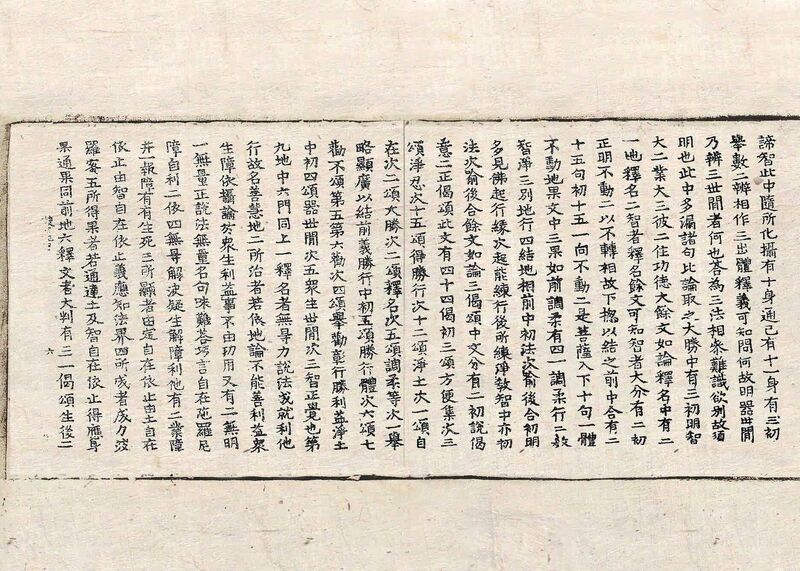 諦智此中隨所化攝有十身通已有十一身有三初
舉數二辨相作三出體釋義可知問何故明器世間
乃辨三世間者何也荅為三法相条難識欲别故須
明也此中多漏諸句比論取之大勝中有三初明智
大二業大三彼二住功德大餘文如論釋名中有二
一地釋名二智者釋名餘文可知智者大分有二初
正明不動二以不轉相故下揔以結之前中合有二
十五句初十五一向不動二是菩薩入下十句一體
不動地果文中三果如前調柔有四一調柔行二教
智淨三别地行四結地相前中初法次喻後合初明
多見佛起行縁次起能練行後所練淨教智中亦初
法次喻後合餘文如論三偈頌中文分有二初說偈
意二正偈頌此文有四十四偈初三頌方便集次三
頌淨忍次十五頌得勝行次十二頌淨土次一頌自
在次二頌大勝次二頌釋名次五頌調柔等次一舉
略顯廣以結前義勝行中初五頌勝行體次六頌七
勸不頌第五第六勸次四頌舉勸彰行勝利益淨土
中初四頌器世間次五衆生世間次三智正覺也第
九地中六門同上一釋名者無导力說法成就利他
行故名善慧地二所治者若依地論不能善利益衆
生障依攝論於衆生利益事不由功用又有二無明
一無量正說法無量名句味難荅巧言自在陁羅尼
障自利二依四無导解決疑生解障利他有二業障
并一報障有有生死三所顯者由定自在依止由土自在
依止由智自在依止義應知法界四所成者成力波
羅蜜五所得果者若通達土及智自在依止得應身
果通果同前地六釋文者大判有三一偈頌生後二
六